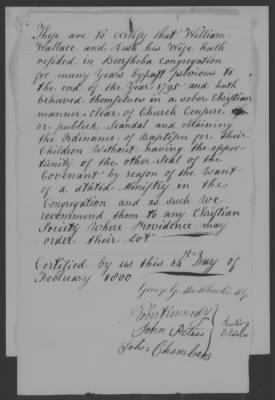 These are to certify that William
Wallace and Ruth his Wife hath
resided in Beersheba congregation
for many Years bypast previous to
the end of the Year 1795 and hath
behaved themselves in a sober Christian
manner clear of Church Censure
or publick Scandal and obtaining
the Ordinance of Baptism for their
Children Without having the oppor-
tunity of the other Seal of the
Covenant by reason of the Want
of a stated Ministry in the
Congregation and as such we
recommend them to any Christian
Society Where Providence may
order their Lot
Certified by us this Day of
February 1800
George G.
Robert Kennedy
John Peters
John Chambers
Ruling
Elders